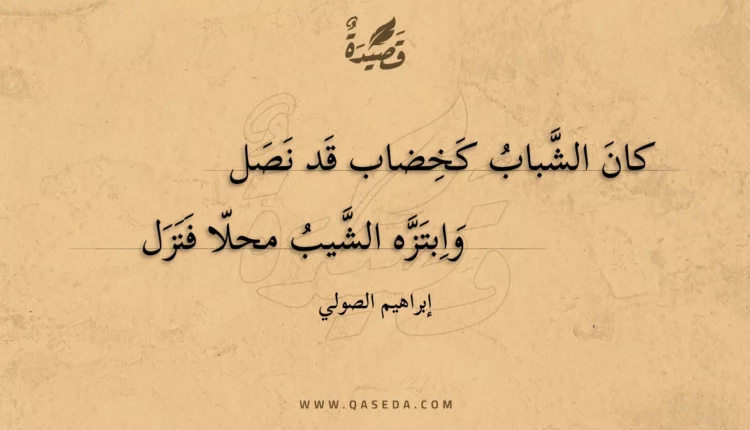 قَصِيدَةٌ
كانَ الشَّبابُ كَخِضاب قَد نَصَل
وَاِبتَزَّه الشَّيبُ محلّا فَنَزَل
إبراهيم الصولي
WWW.QASEDA.COM